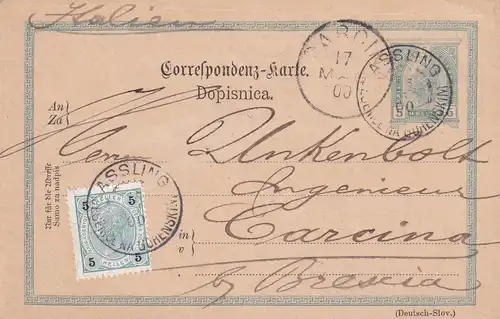 Italien
GARCINA
17
00
ASSLING
JESENICE NA GORENSKEM
5 5
Correspondenz-Karte.
Dopisnica.
An
Za
Herrn Unkenbolt
Ingenieur
in
v
Carcina
by Brescia
Nur für die Adresse
Samo za nadpis
ASSLING
JESENICE NA GORENSKEM
5 5
5 5
(Deutsch-Slov.)